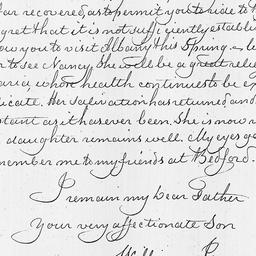 far recovered, as to permit you to ride to
regret that it is not sufficiently establi
low you to visit Albany this Spring
to see Nancy. She will be a great relie
aria, whose health continues to be ex
licate. Her salivation has returned and
stant as it has ever been. She is now
daughter remains well. My eyes ga
remember me to my friends at Bedford.
I remain my Dear Father
Your very affectionate Son